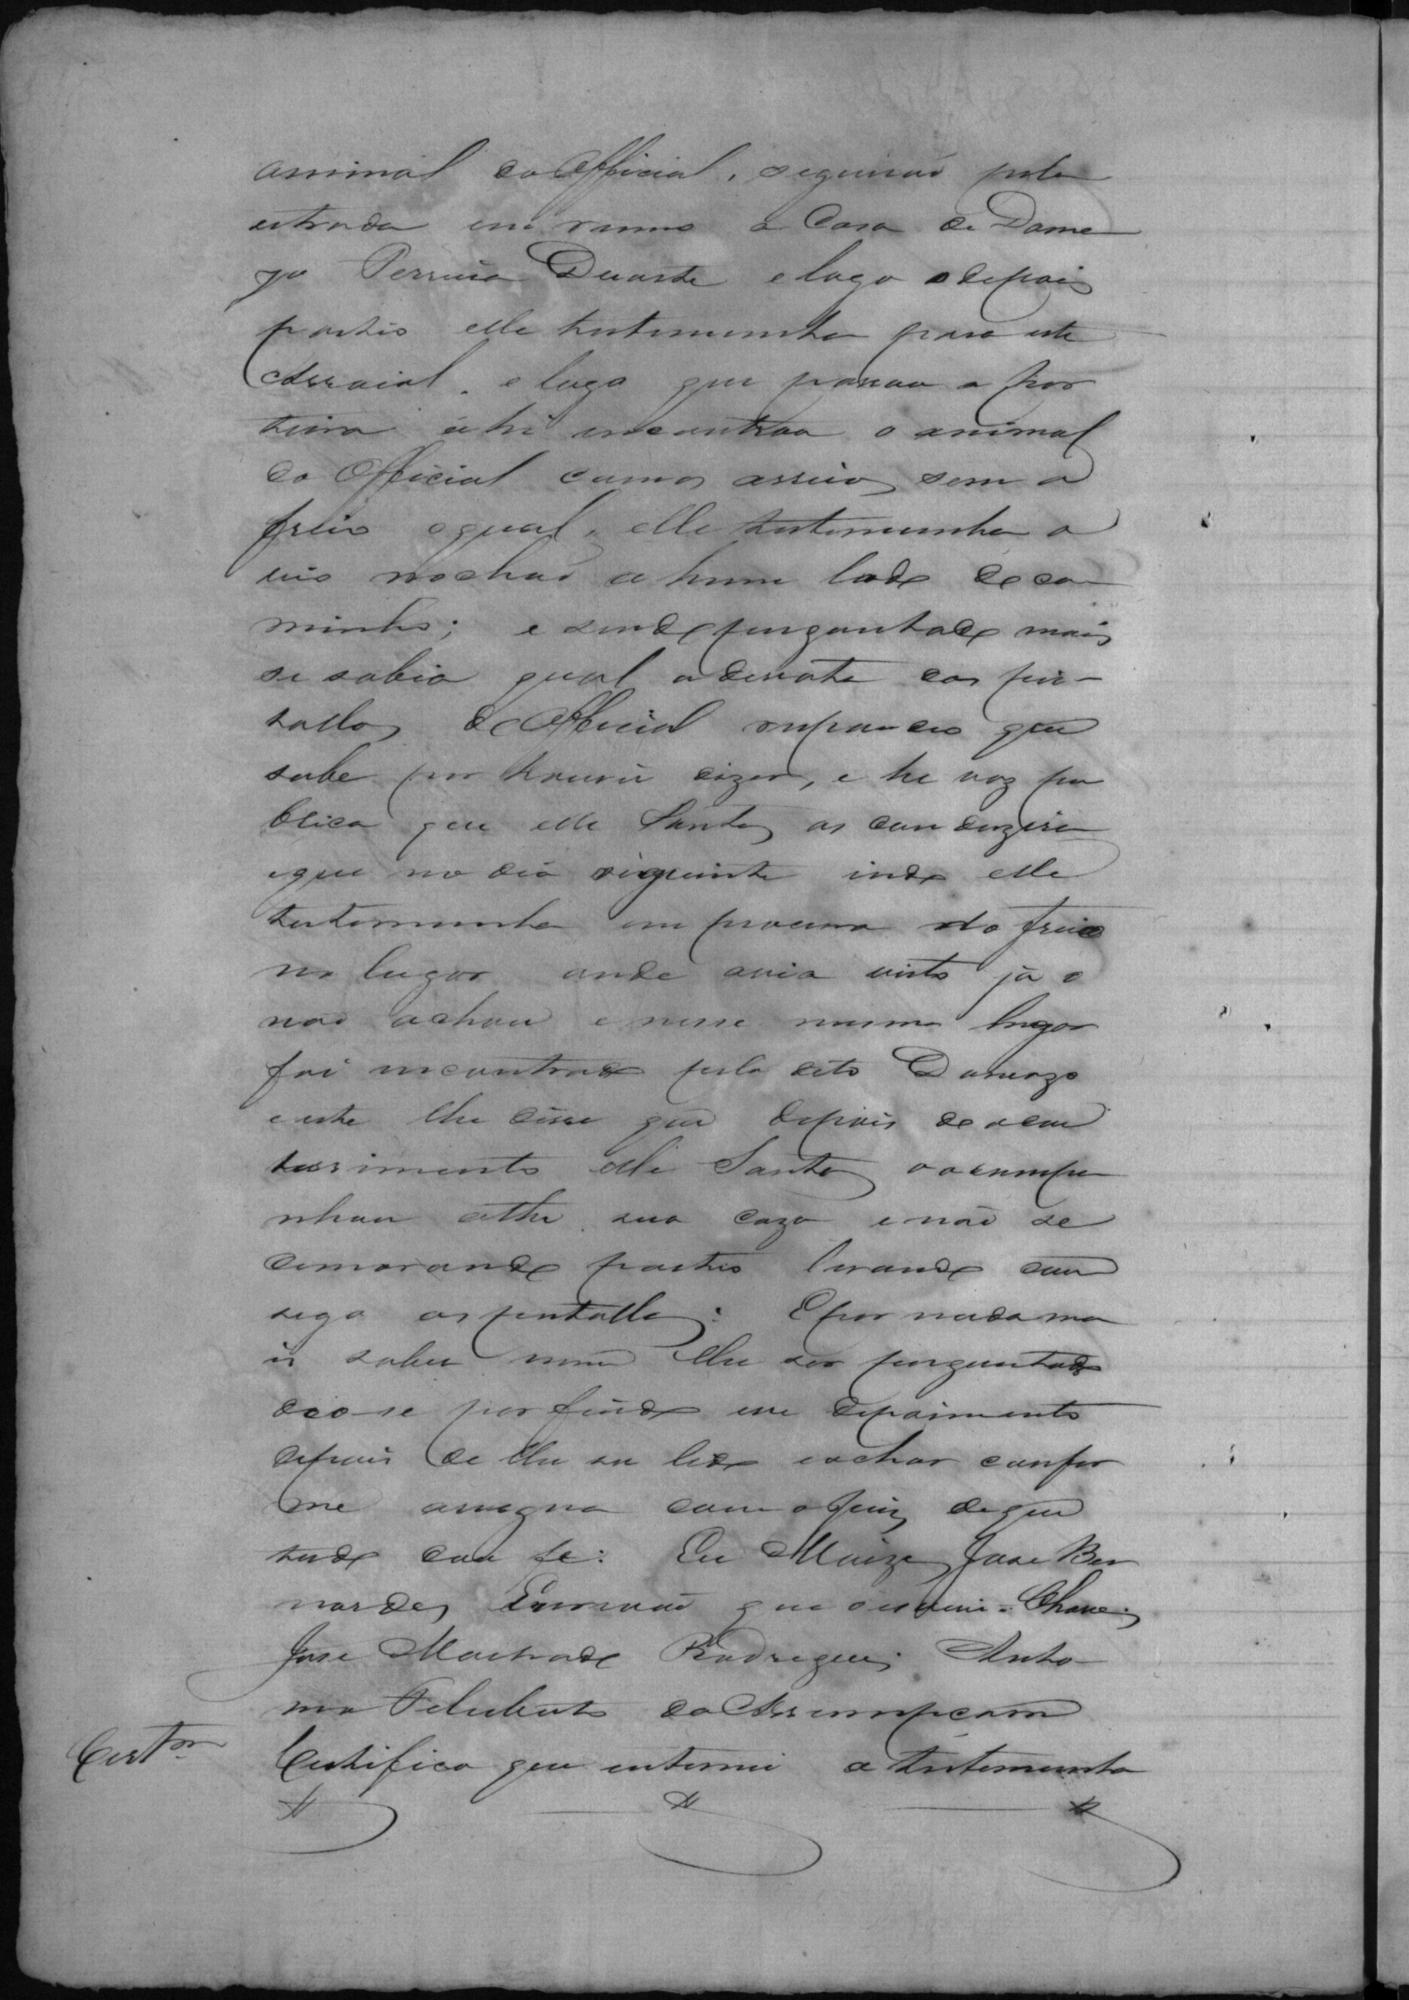 animal do Official, seguirão pela
estrada em rumo a Casa de Dame
zo Perreira Duarte e logo depois
partio elle testemunha para este
Arraial, e logo que passou a por
teira ahi encontrou o animal
do Official com os arreios sem o
freio o qual, elle testemunha o
vio no chão a hum lado do ca
minho; e sendo perguntado mais
se sabia qual a derrota das pis
tollas do Official respondeo que
sabe por houvir dizer, e he voz pu
blica que elle Santos as conduzira
e que no dia siguinte indo elle
testemunha em procura do freio
no lugar onde avia visto já o
não achou e nesse mesmo lugar
foi encontrado pelo dito Damazo
e este lhe disse que depois do acon
tessimento elle Santos o acompa
nhou athe sua caza e não se
demorando partio levando com
sigo as pistollas: E por nada ma
is saber nem lhe ser perguntado
deo-se por findo este depoimento
depois de lhe ser lido e achar confor
me assigna com o Juiz do que
tudo dou fé: Eu Moizes Jose Ber
nardes Escrivão que o escrevi = Chaves
Jose Machado Rodrigues Anto
nio Feliberto da Assumpcam
Cert.am Certifico que intimei a testemunha